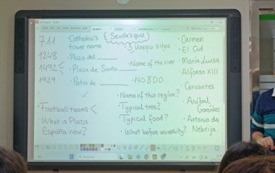 711
1248
1492
1929
Cathedral's
tower name
Sevilla quiz
Plaza del
Name of the river
Plaza de Santa
Patio de
NO8DO
Name of this region?
Football teams <
Typical tree?
What is Plaza
Typical food?
España now?
What before
Carmen
El Cid
María Luisa
Alfonso XIII
Cervantes
Aníbal
González
Antonio de
Nebrija